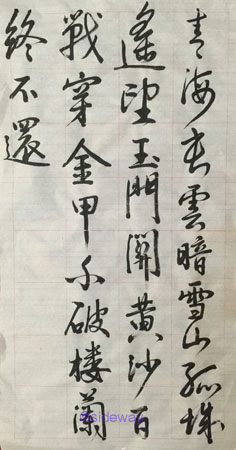 青海長雲暗雪山孤城
遙望玉門關黃沙百
戰穿金甲不破樓蘭
終不還
sideway